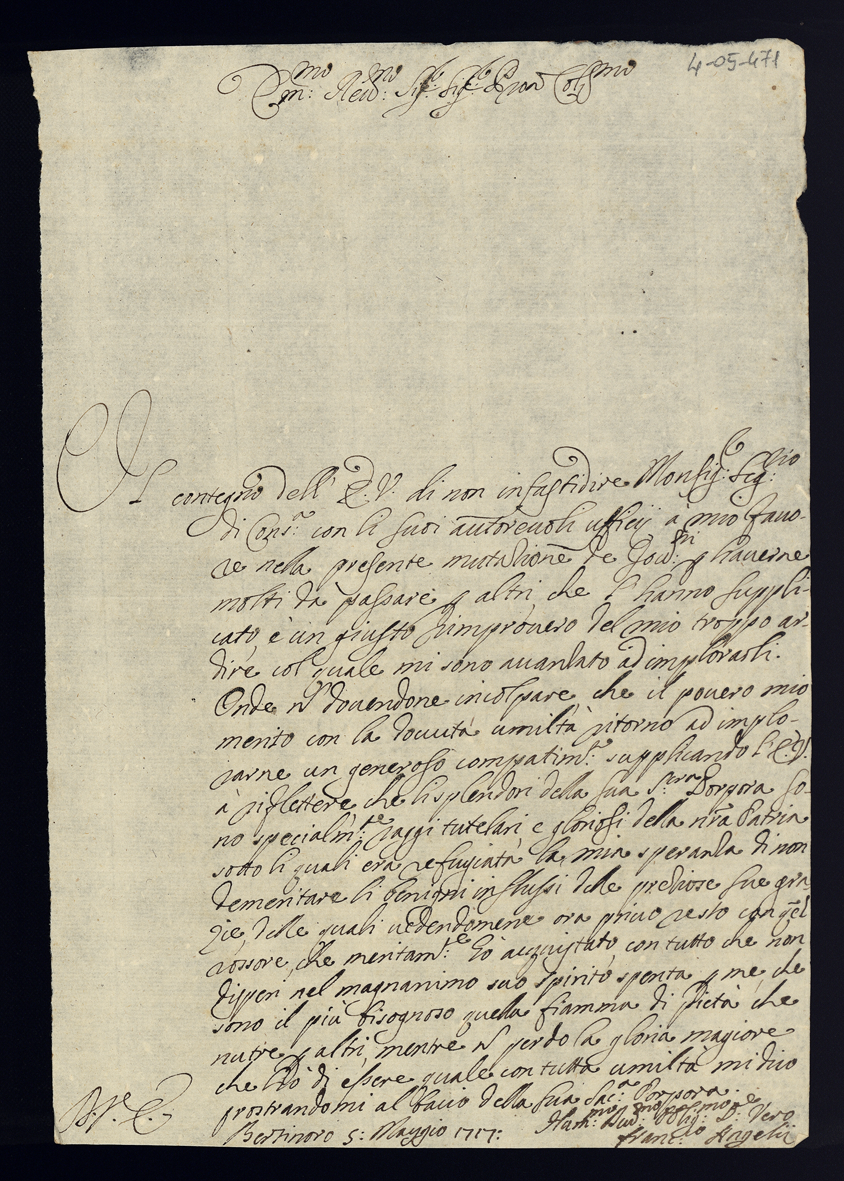 4-05-471
Em:mo Reu:mo Sig:r Sig:r Pron Col:mo
Il contegno dell' E.V. di non infastidire Monsig:r Seg:rio
di Cons:a con li suoi autoreuoli ufficij à mio fauo-
re nella presente mutatione de Gou:ri p hauerne
molti da passare p altri che l'hanno suppli-
cato, è un giusto rimprouero del mio troppo ar-
dire col quale mi sono auanzato ad implorarli.
Onde nõ douendone incolpare che il pouero mio
merito con la douuta umiltà ritorno ad implo-
rarne un generoso compatim:to supplicando l'E.V.
à riflettere che li splendori della sua S:ra Porpora so-
no specialm:te raggi tutelari e gloriosi della nr̃a Patria
sotto li quali era refugiata la mia speranza di non
demeritare li benigni influssi delle preziose sue gra-
zie delle quali uedendomene ora priuo resto con q̃l
rossore, che meritam:te hò acquistato con tutto che non
disperi nel magnanimo suo spirito spenta p me, che
sono il più bisognoso quella fiamma di pietà che
nutre p altri, mentre nõ perdo la gloria magiore
che hò di essere quale con tutta umiltà mi diuo
prostrandomi al bacio della sua Sac:a Porpora.
B.re E.
Bertinoro 5: Maggio 1717:
Hum:mo Diu:mo Oblig:mo Se:re Vero
Franc:co Angelij